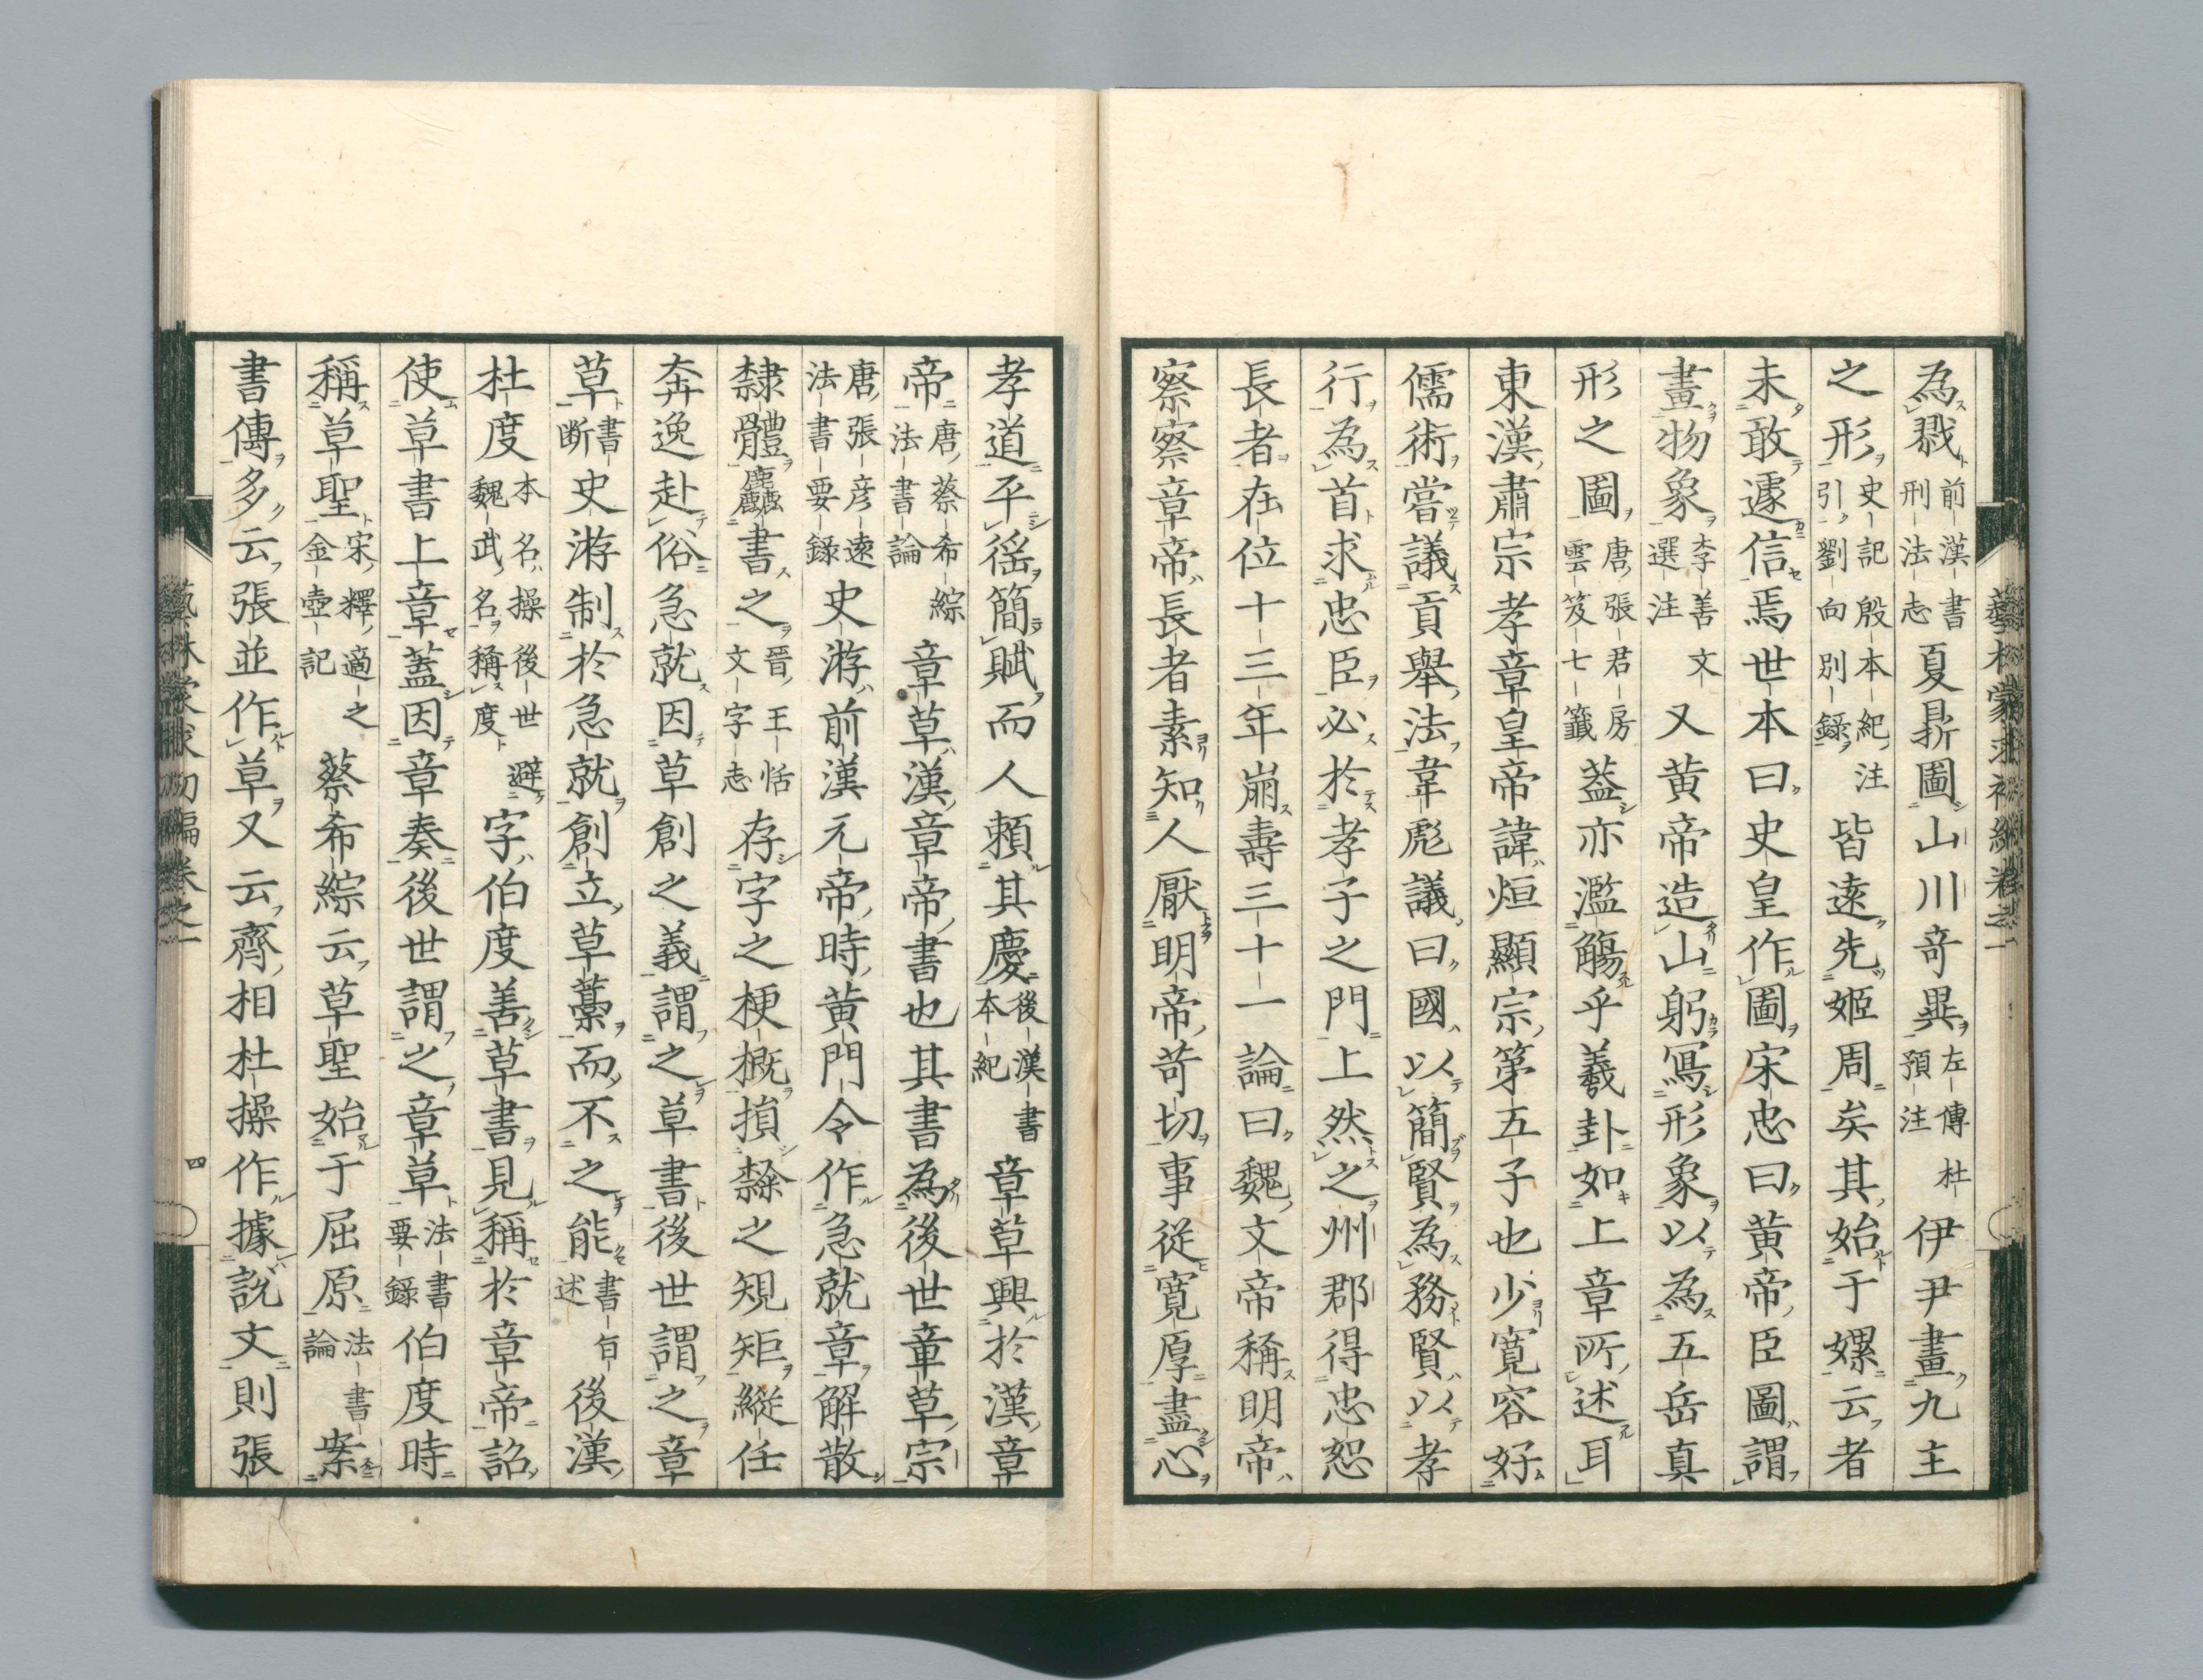 為戮前漢書刑法志夏鼎圖山川奇異左傳杜預注伊尹畫九主
之形史記殷本紀注引劉向別録皆遠先姬周矣其始于嫘云者
未敢遽信焉世本曰史皇作圖宋忠曰黄帝臣圖謂
畫物象李善文選注又黄帝造山躬寫形象以為五岳真
形之圖唐張君房雲笈七籤葢亦濫觴乎羲卦如上章所述耳
東漢肅宗孝章皇帝諱烜顯宗第五子也少寛容好
儒術嘗議貢舉法韋彪議曰國以簡賢為務賢以孝
行為首求忠臣必於孝子之門上然之州郡得忠恕
長者在位十三年崩壽三十一論曰魏文帝稱明帝
察察章帝長者素知人厭明帝苛切事從寛厚盡心
孝道平徭簡賦而人頼其慶後漢書本紀章草興於漢章
帝唐蔡希綜法書論章草漢章帝書也其書為後世章草宗
唐張彦遠法書要録史游前漢元帝時黄門令作急就章解散
隸體麤書之晉王恬文字志存字之梗概損隸之規矩縦任
奔逸赴俗急就因草創之義謂之草書後世謂之章
草書断史游制於急就創立草藁而不之能書旨述後漢
杜度本名操後世避魏武名稱度字伯度善草書見稱於章帝詔
使草書上章蓋因章奏後世謂之章草法書要録伯度時
稱草聖宋釋適之金壺記蔡希綜云草聖始于屈原法書論案
書傳多云張並作草又云齊相杜操作據説文則張
藝林蒙求初編卷之一
四